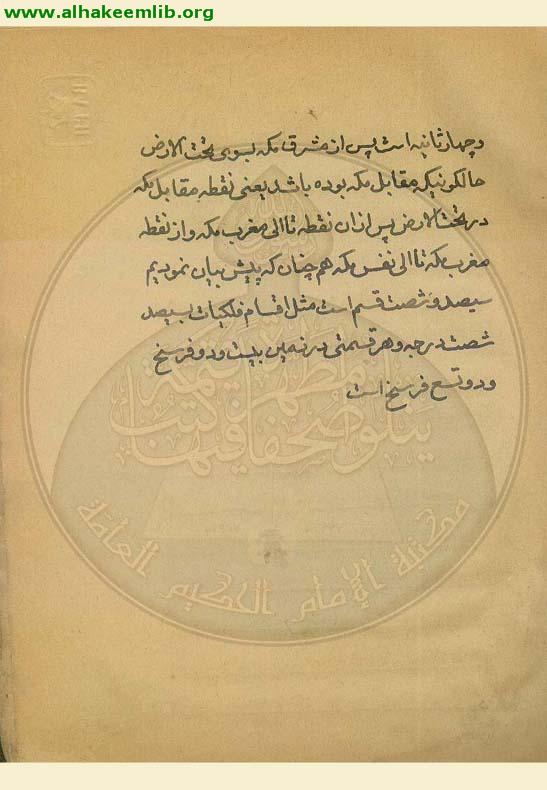 www.alhakeemlib.org
و چهار ثانیه است پس از مشرق مکه بسوی تحت الارض
حالکونیکه مقابل مکه بوده باشد یعنی نقطه مقابل مکه
در تحت الارض پس از ان نقطه تا الی مغرب مکه و از نقطه
مغرب مکه تا الی نفس مکه هم چنان که پیش بیان نمودیم
سیصد و شصت قسم است مثل اقسام فلکیات بسیصد
شصت درجه و هر قسمتی در زمین بیست و دو فرسخ
و دو تسع فرسخ است
يتلو صحفا مطهرة فيها كتب قيمة
مكتبة الإمام الحكيم العامة